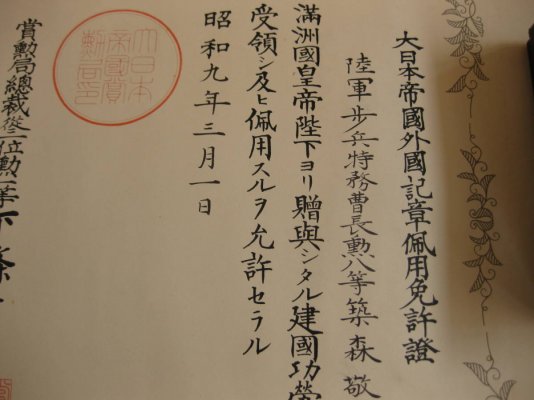 大日本帝國外國記章佩用免許證
陸軍步兵特務曹長勲八等築森敬
滿洲國皇帝陛下ヨリ贈與シタル建國功勞
受領シ及ヒ佩用スルヲ允許セラル
昭和九年三月一日
賞勳局總裁從二位勲一等下條
大日本
帝國賞
勳局印